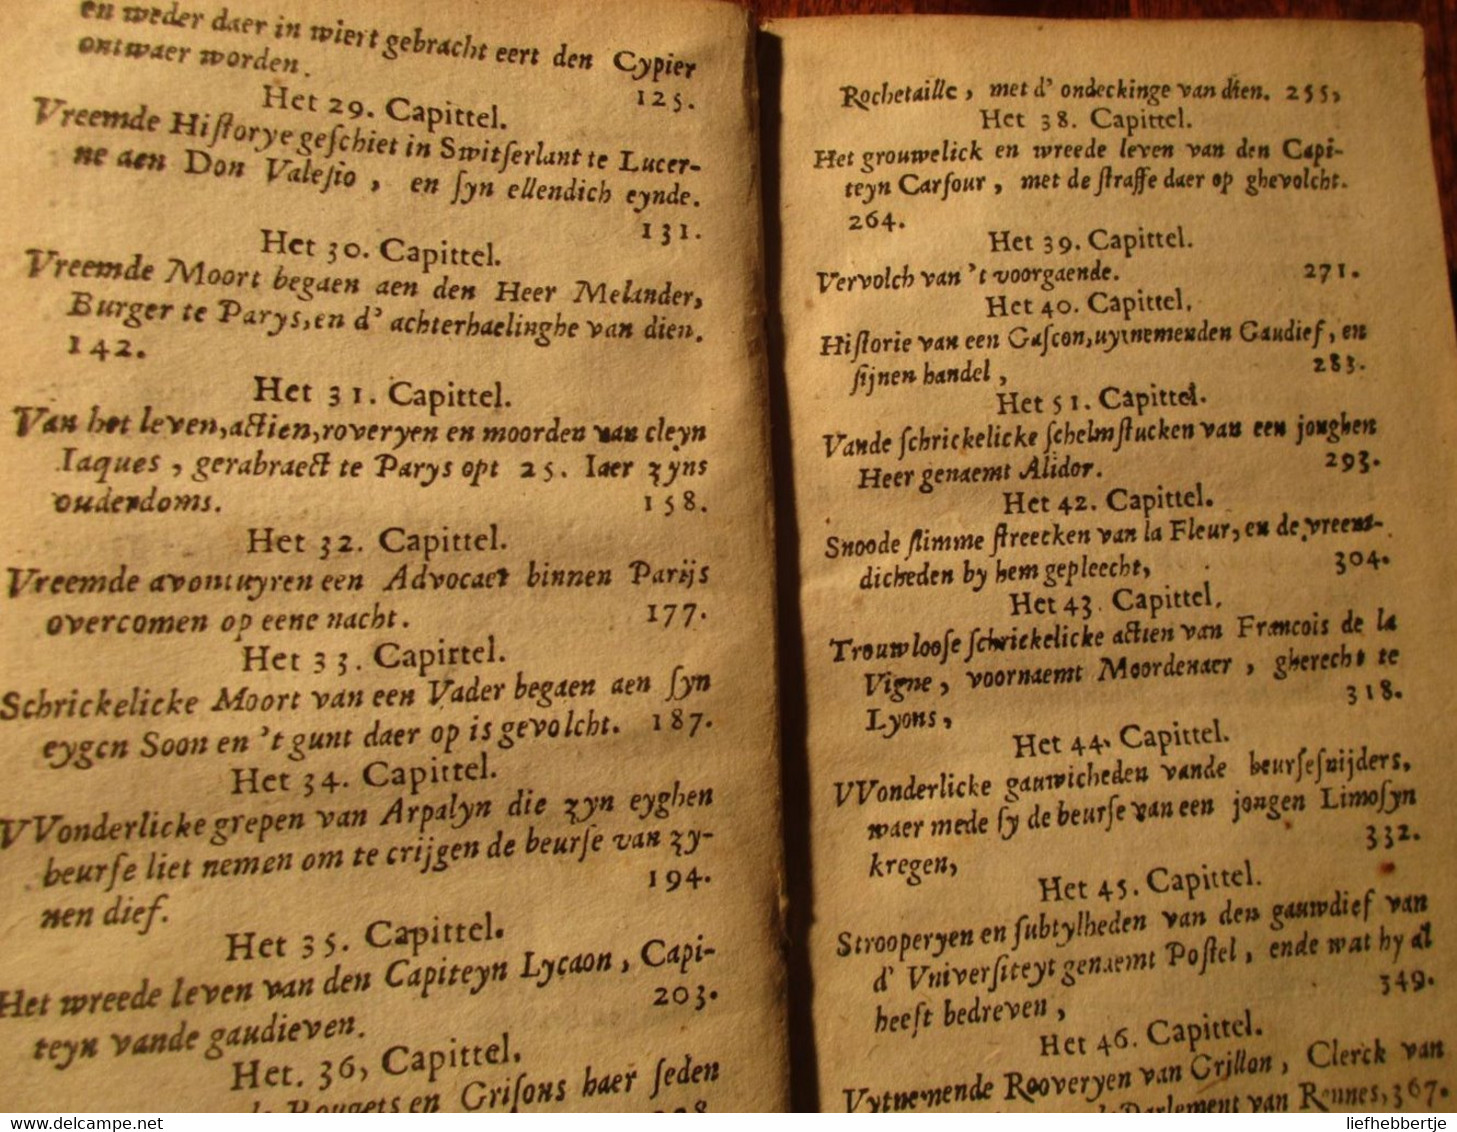 en weder daer in wiert gebracht eert den Cypier
ontwaer worden. 125.
Het 29. Capittel.
Vreemde Hiſtorye geſchiet in Switſerlant te Lucer-
ne aen Don Valeſio, en ſyn ellendich eynde.
131.
Het 30. Capittel.
Vreemde Moort begaen aen den Heer Melander,
Burger te Parys, en d' achterhaelinghe van dien.
142.
Het 31. Capittel.
Van het leven, actien, roveryen en moorden van cleyn
Iaques, gerabraect te Parys opt 25. Iaer zyns
ouderdoms. 158.
Het 32. Capittel.
Vreemde avontuyren een Advocaet binnen Parijs
overcomen op eene nacht. 177.
Het 33. Capittel.
Schrickelicke Moort van een Vader begaen aen ſyn
eygen Soon en 't gunt daer op is gevolcht. 187.
Het 34. Capittel.
VVonderlicke grepen van Arpalyn die zyn eyghen
beurſe liet nemen om te crijgen de beurſe van zy-
nen dief. 194.
Het 35. Capittel.
Het wreede leven van den Capiteyn Lycaon, Capi-
teyn vande gaudieven. 203.
Het. 36, Capittel.
Rougets en Griſons haer ſeden
Rochetaille, met d' ondeckinge van dien. 255,
Het 38. Capittel.
Het grouwelick en wreede leven van den Capi-
teyn Carfour, met de ſtraffe daer op ghevolcht.
264.
Het 39. Capittel.
Vervolch van 't voorgaende. 271.
Het 40. Capittel.
Hiſtorie van een Gaſcon, uytnemenden Gaudief, en
ſijnen handel, 283.
Het 51. Capittel.
Vande ſchrickelicke ſchelmſtucken van een jonghen
Heer genaemt Alidor. 293.
Het 42. Capittel.
Snoode ſlimme ſtreecken van la Fleur, en de vreem-
dicheden by hem gepleecht, 304.
Het 43. Capittel.
Trouwlooſe ſchrickelicke actien van Francois de la
Vigne, voornaemt Moordenaer, gherecht te
Lyons, 318.
Het 44. Capittel.
VVonderlicke gauwicheden vande beurſeſnijders,
waer mede ſy de beurſe van een jongen Limoſyn
kregen, 332.
Het 45. Capittel.
Strooperyen en ſubtylheden van den gauwdief van
d' Vniverſiteyt genaemt Poſtel, ende wat hy al
heeft bedreven, 349.
Het 46. Capittel.
Vytnemende Rooveryen van Grillon, Clerck van
Parlement van Rennes, 367.
www.delcampe.net
liefhebbertje